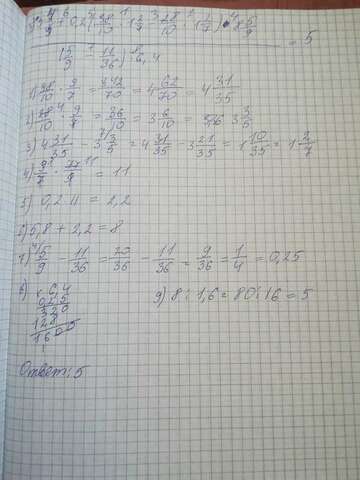 (5/9 - 11/36) · 6,4
= 5
1) 38/10 · 9/7 = 342/70 = 4 62/70 = 4 31/35
2) 28/10 · 9/7 = 36/10 = 3 6/10 = 3 3/5
3) 4 31/35 - 3 3/5 = 4 31/35 - 3 21/35 = 1 10/35 = 1 2/7
4) 9/7 · 77/9 = 11
5) 0,2 · 11 = 2,2
5,8 + 2,2 = 8
7) 5/9 - 11/36 = 20/36 - 11/36 = 9/36 = 1/4 = 0,25
8) × 6,4
0,25
320
128
1600
9) 8 : 1,6 = 80 : 16 = 5
Ответ: 5